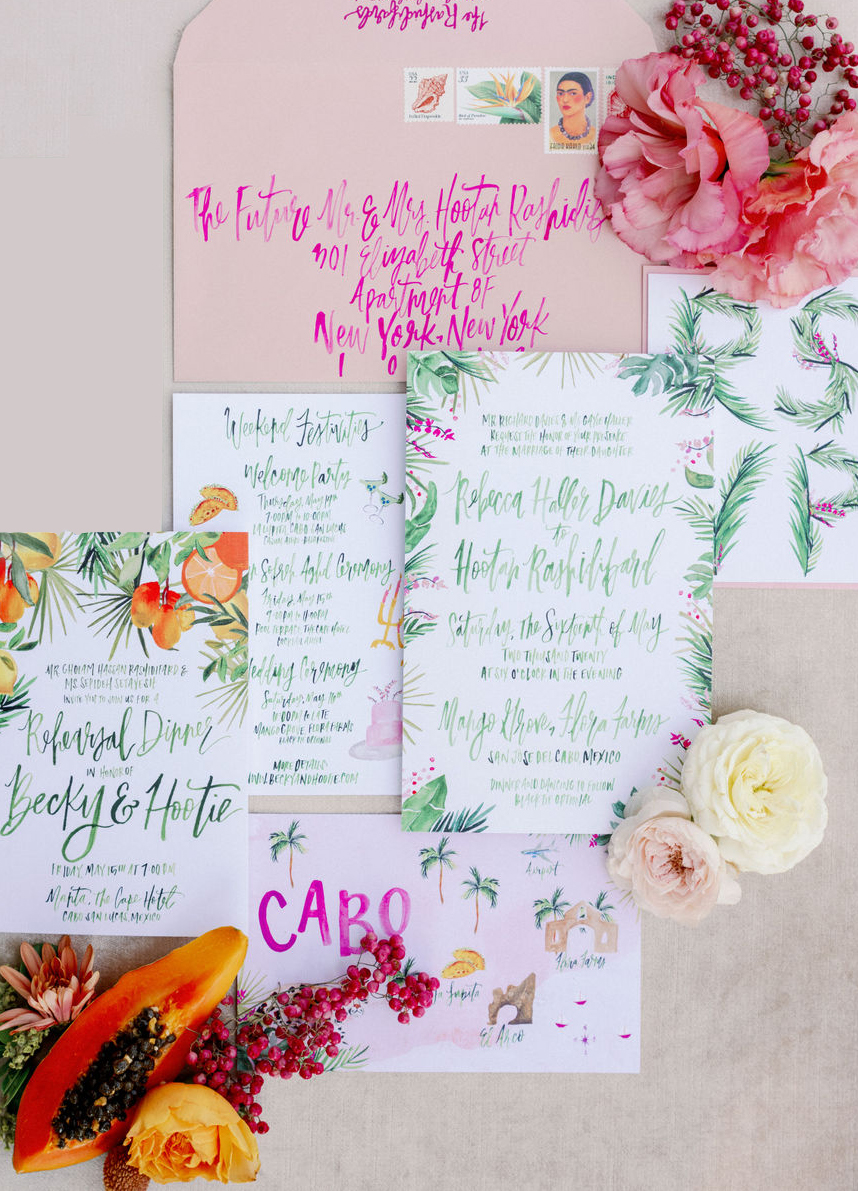 The Rashidifards
USA
22
Frilled Dogwinkle
USA
33
Bird of Paradise
FRIDA KAHLO USA 34
The Future Mr. & Mrs. Hootan Rashidif
301 Elizabeth Street
Apartment 8F
New York, New York
1 0
RS
VP
Weekend Festivities
Welcome Party
Thursday, May 14th
7:00PM to 10:00PM
Cabo San Lucas
Sofreh Aghd Ceremony
Friday, May 15th
The Cape Hotel
Wedding Ceremony
Saturday, May 16th
to Late
Mango Grove, Flora Farms
Black Tie Optional
More Details
www.beckyandhootie.com
Mr. Richard Davies & Ms. Casie Haller
Request the Honor of Your Presence
at the Marriage of Their Daughter
Rebecca Haller Davies
to
Hootan Rashidifard
Saturday, the Sixteenth of May
Two Thousand Twenty
at Six O'Clock in the Evening
Mango Grove, Flora Farms
San Jose del Cabo, Mexico
Dinner and Dancing to Follow
Black Tie Optional
Mr. Gholam Hassan Rashidifard &
Ms. Sepideh Setayesh
Invite You to Join Us for a
Rehearsal Dinner
in Honor of
Becky & Hootie
Friday, May 15th at 7:00 PM
Manta, the Cape Hotel
Cabo San Lucas, Mexico
CABO
Airport
Flora Farms
La Lupita
El Arco